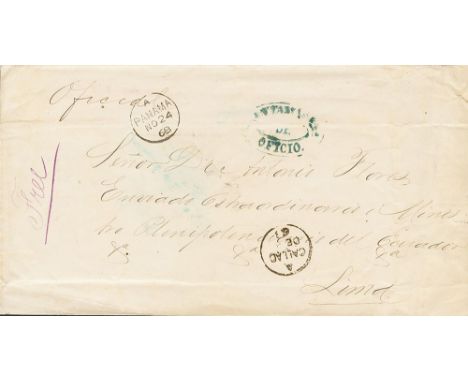 Oficial
A
PANAMA
NO 24
68
DE
OFICIO.
Free
Señor Dr Antonio Flores
Enviado Extraordinario i Minis
tro Plenipotenciario del Ecuador
&a &a &a
A
CALLAO
DE
Lima